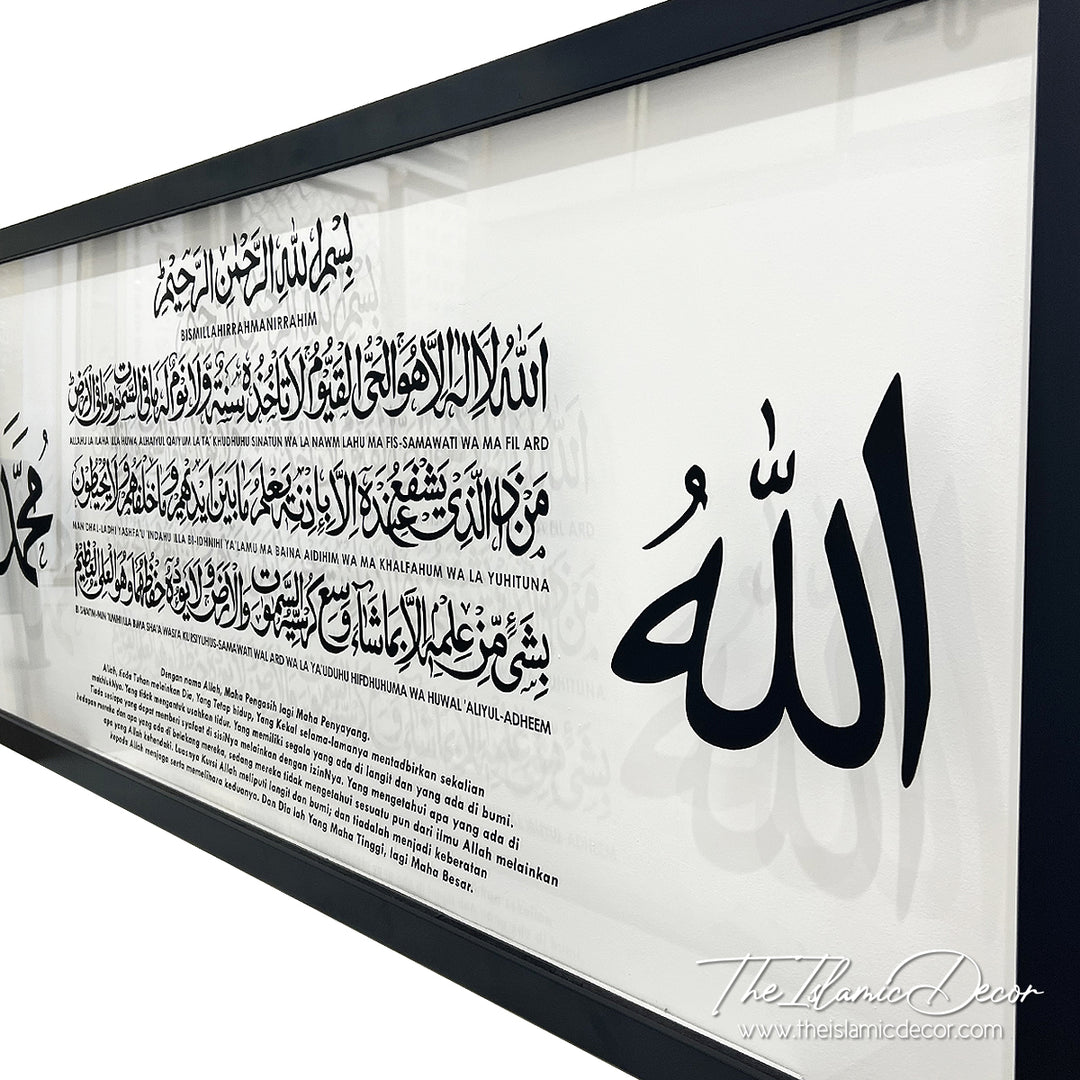 بِسْمِ اللهِ الرَّحْمٰنِ الرَّحِيْمِ
BISMILLAHIRRAHMANIRRAHIM
اَللهُ لَا اِلٰهَ اِلَّا هُوَ الْحَيُّ الْقَيُّوْمُ لَا تَأْخُذُهٗ سِنَةٌ وَّلَا نَوْمٌ لَهٗ مَا فِي السَّمٰوٰتِ وَمَا فِي الْاَرْضِ
ALLAHU LA ILAHA ILLA HUWA ALHAIYUL QAIYUM LA TA' KHUDHUHU SINATUN WA LA NAWM LAHU MA FIS-SAMAWATI WA MA FIL ARD
مَنْ ذَا الَّذِيْ يَشْفَعُ عِنْدَهٗ اِلَّا بِاِذْنِهٖ يَعْلَمُ مَا بَيْنَ اَيْدِيْهِمْ وَمَا خَلْفَهُمْ وَلَا يُحِيْطُوْنَ
MAN DHAL-LADHI YASHFA'U 'INDAHU ILLA BI-IDHNIHI YA'LAMU MA BAINA AIDIHIM WA MA KHALFAHUM WA LA YUHITUNA
بِشَيْءٍ مِّنْ عِلْمِهٖ اِلَّا بِمَا شَاءَ وَسِعَ كُرْسِيُّهُ السَّمٰوٰتِ وَالْاَرْضَ وَلَا يَئُوْدُهٗ حِفْظُهُمَا وَهُوَ الْعَلِيُّ الْعَظِيْمُ
ILLA BIMA SHA'A WASI'A KURSIYUHUS-SAMAWATI WAL ARD WA LA YA'UDUHU HIFDHUHUMA WA HUWAL 'ALIYUL-ADHEEM
Dengan nama Allah, Maha Pengasih lagi Maha Penyayang.
Allah, tiada Tuhan melainkan Dia, Yang Tetap hidup, Yang Kekal selama-lamanya mentadbirkan sekalian
makhlukNya. Yang tidak mengantuk usahkan tidur. Yang memiliki segala yang ada di langit dan yang ada di bumi.
Tiada sesiapa yang dapat memberi syafaat di sisiNya melainkan dengan izinNya. Yang mengetahui apa yang ada di
hadapan mereka dan apa yang ada di belakang mereka, sedang mereka tidak mengetahui sesuatu pun dari ilmu Allah melainkan
apa yang Allah kehendaki. Luasnya Kursi Allah meliputi langit dan bumi; dan tiadalah menjadi keberatan
kepada Allah menjaga serta memelihara keduanya. Dan Dia lah Yang Maha Tinggi, lagi Maha Besar.
الله
مُحَمَّد
The Islamic Decor
www.theislamicdecor.com